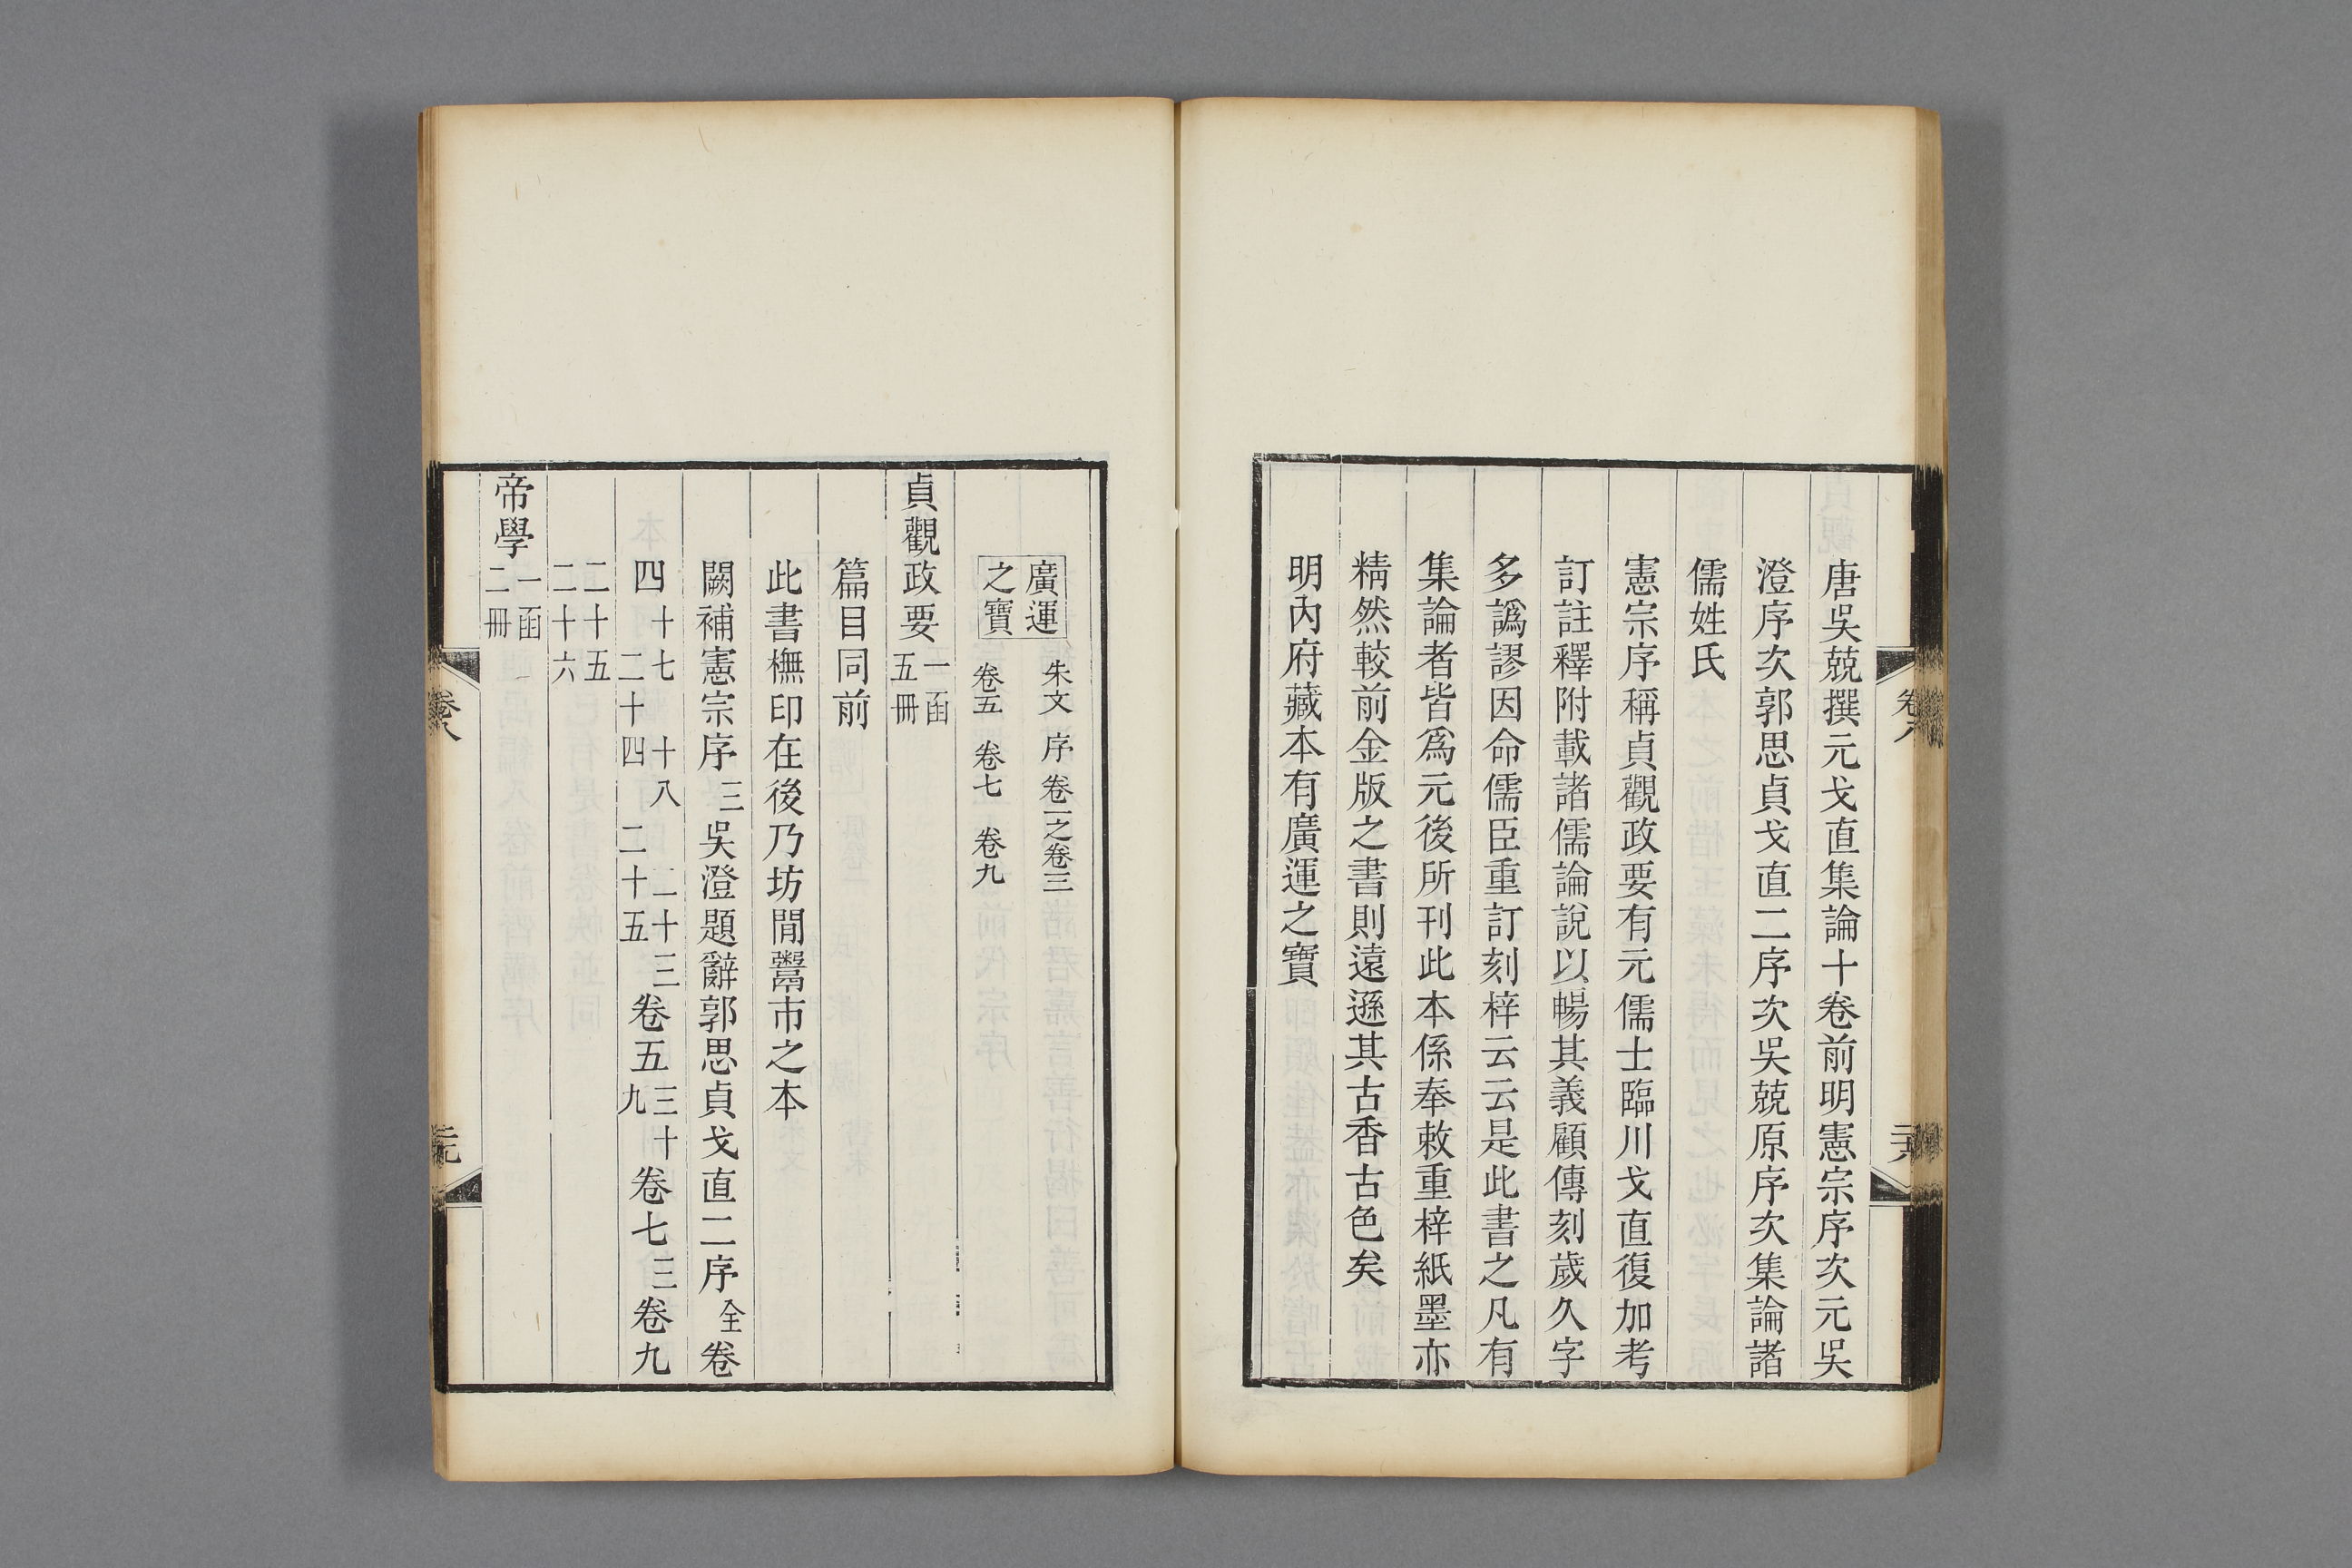 唐吳兢撰元戈直集論十卷前明憲宗序次元吳
澄序次郭思貞戈直二序次吳兢原序次集論諸
儒姓氏
憲宗序稱貞觀政要有元儒士臨川戈直復加考
訂註釋附載諸儒論說以暢其義顧傳刻歲久字
多譌謬因命儒臣重訂刻梓云云是此書之凡有
集論者皆爲元後所刊此本係奉敕重梓紙墨亦
精然較前金版之書則遠遜其古香古色矣
明內府藏本有廣運之寶
卷八
二十八
廣運
之寶
朱文 序 卷一之卷三
卷五 卷七 卷九
貞觀政要 一函
五冊
篇目同前
此書橅印在後乃坊間鬻市之本
闕補憲宗序 三 吳澄題辭郭思貞戈直二序 全 卷
四 十七 十八 二十三
二十四 二十五
卷五 三十
九
卷七 三 卷九
二十五
二十六
帝學 一函
二冊
卷八
二十九